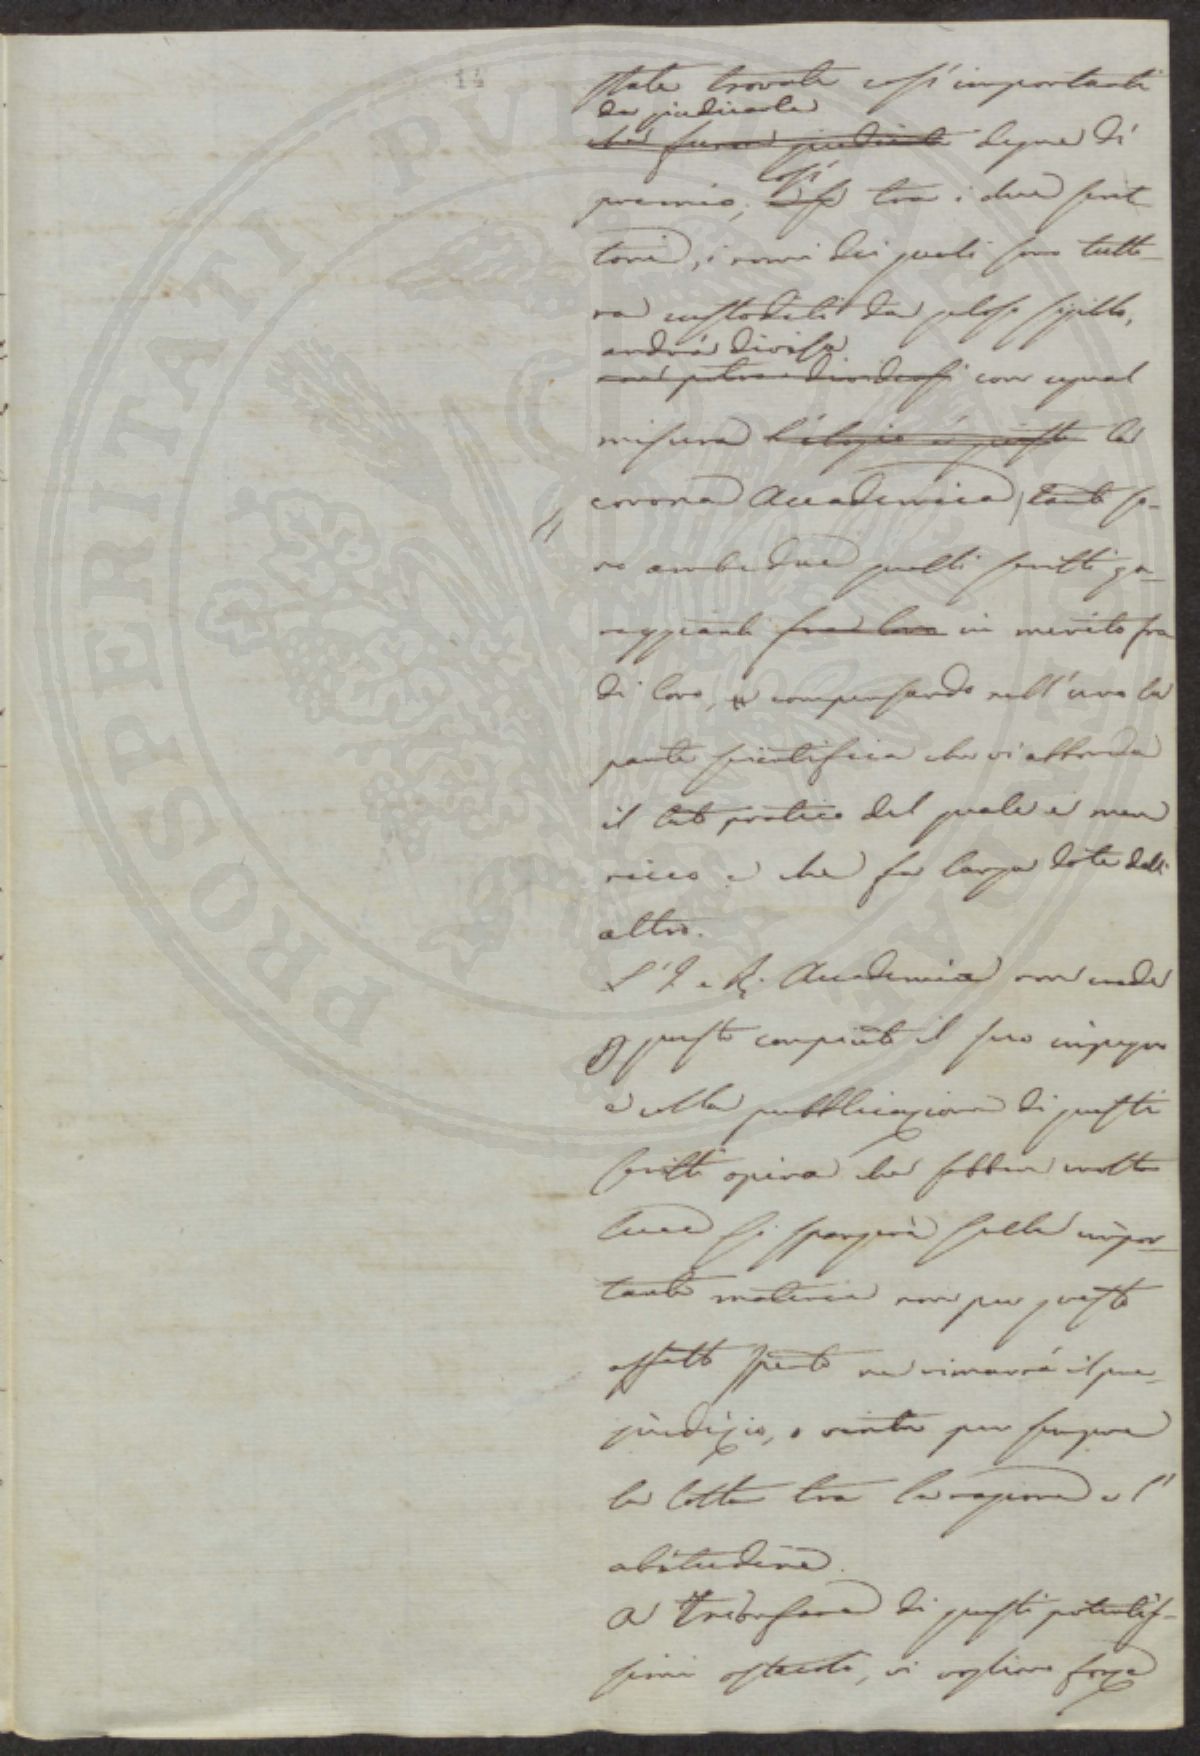 14
state trovate così importanti
da giudicarle
che furon giudicate degne di
premio, così tra i due scrit
tori, i nomi dei quali sono tutto-
ra custoditi da geloso sigillo,
andrà divisa
con egual
misura l'elogio è giusto la
corona Accademica, tanto so-
no ambedue questi scritti ga-
reggianti fra loro in merito fra
di loro, compensando nell'uno la
parte scientifica che vi abbonda
il lato pratico del quale è men
ricco e che fa larga dote dell'
altro.
L'I. e R. Accademia non crede
questo compiuto il suo impegno
e colla pubblicazione di questi
scritti opina che sebben molta
luce si spargerà sulla impor-
tante materia non per questo
affatto spento ne rimarrà il pre-
giudizio, o vinta per sempre
la lotta tra la ragione e l'
abitudine.
A trionfare di questi potentis-
simi ostacoli, vi vogliono forza
PROSPERITATI PUBLICAE AUGENDAE